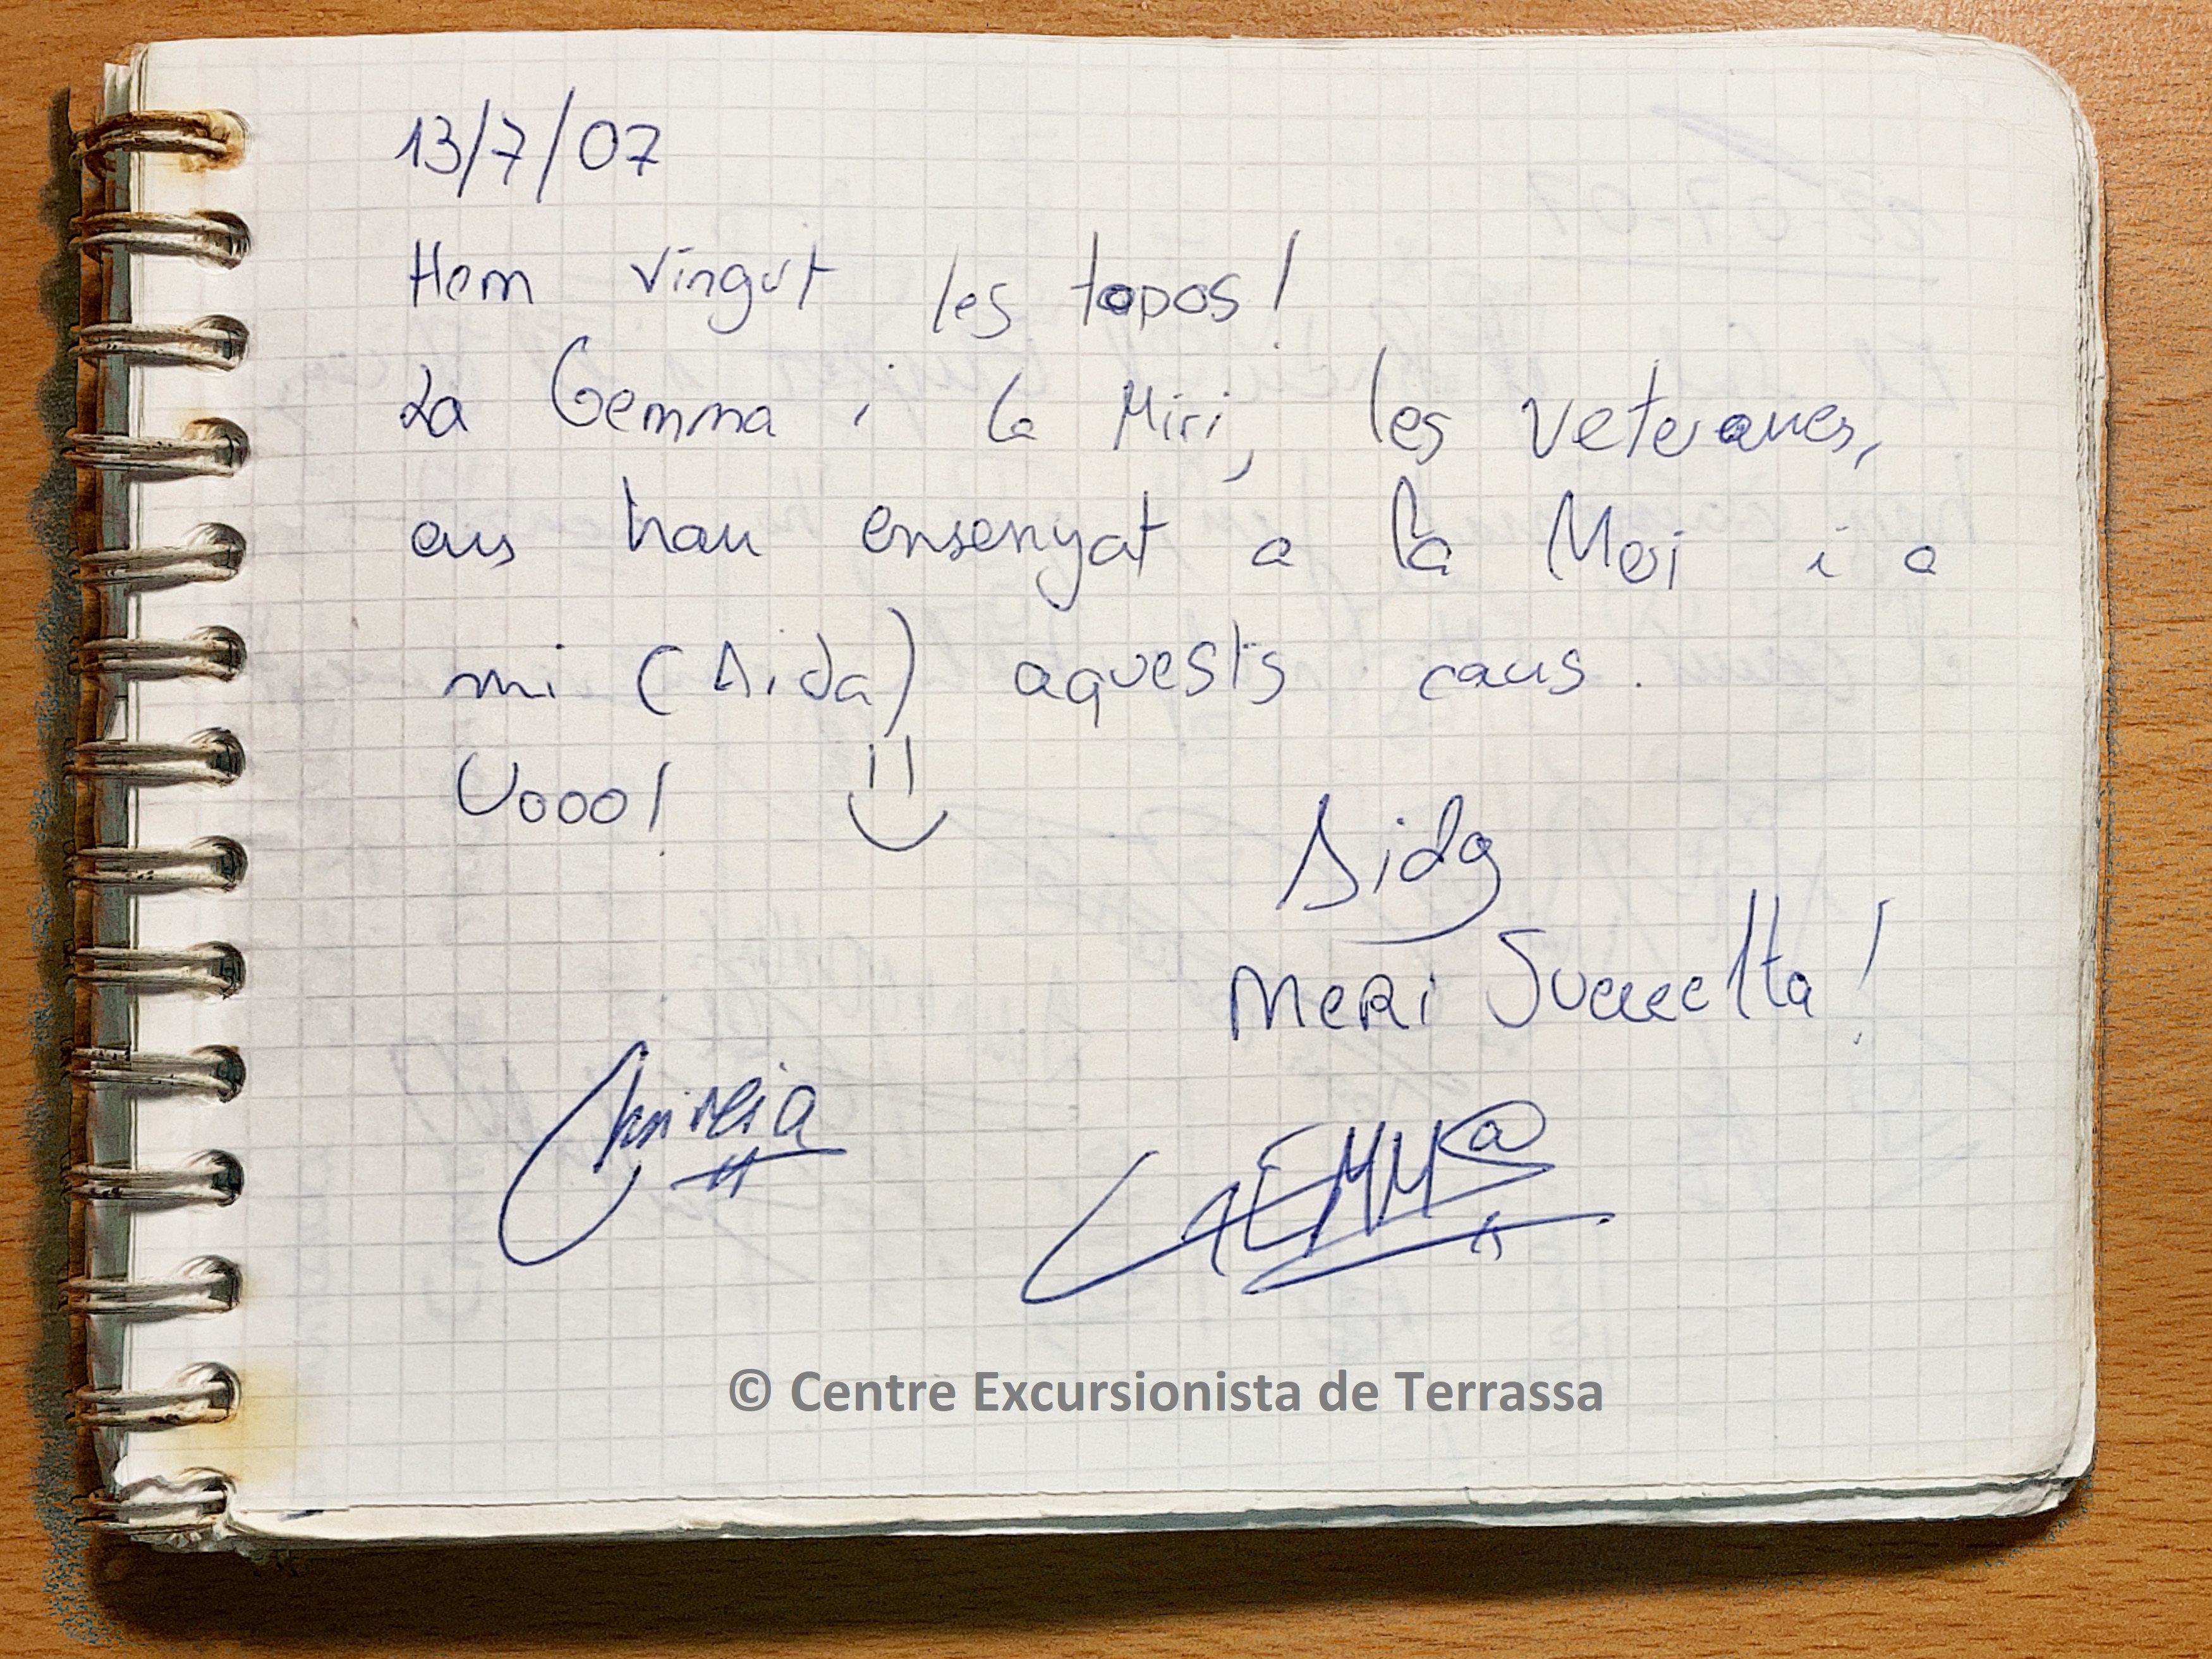 13/7/07
Hem vingut les topos!
La Gemma i la Miri, les veteranes,
ens han ensenyat a la Meri i a
mi (Aida) aquests caus.
Uooo!
Aida
MERI
Mireia
GEMMa
© Centre Excursionista de Terrassa